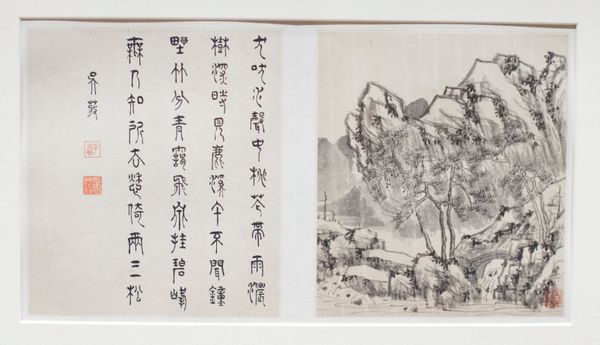 犬吠水聲中桃花帶雨濃
樹深時見鹿溪午不聞鐘
野竹分青靄飛泉挂碧峰
無人知所去愁倚兩三松
吳